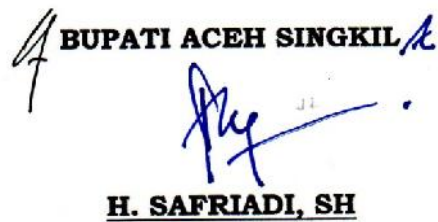 BUPATI ACEH SINGKIL
H. SAFRIADI, SH